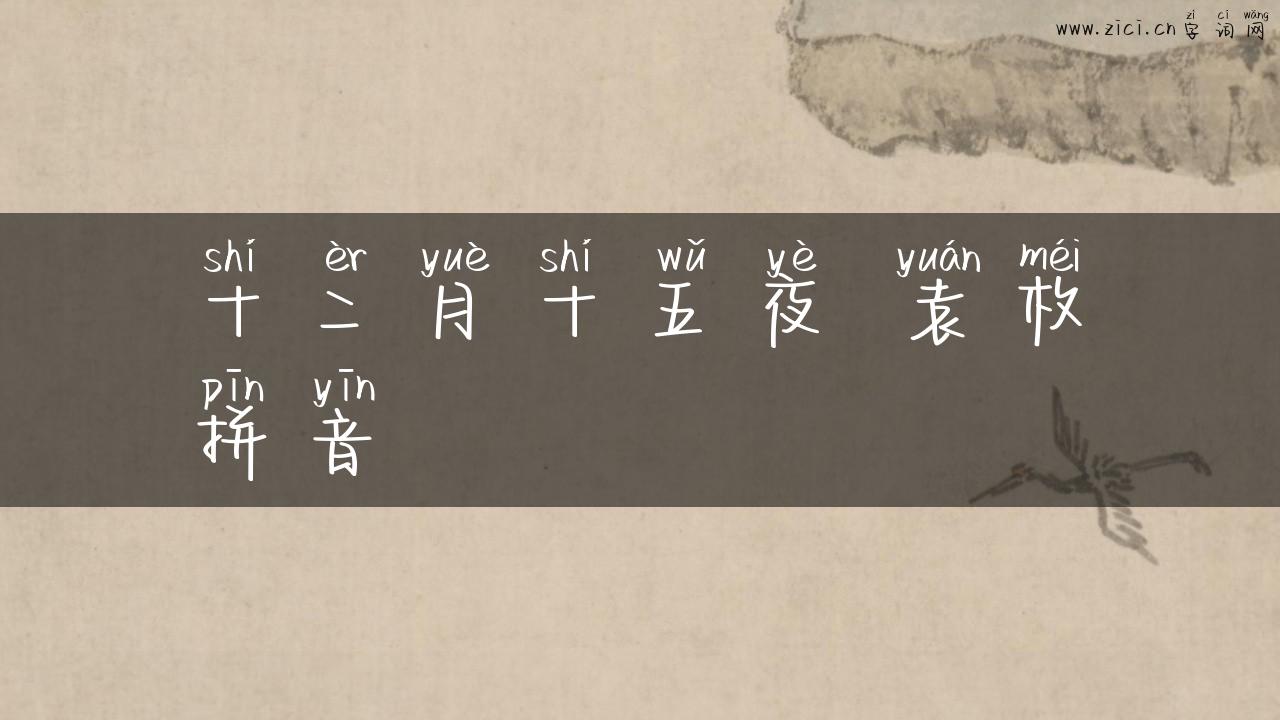 zì cí wǎng
www.zici.cn 字词网
shí èr yuè shí wǔ yè yuán méi
十二月十五夜 袁枚
pīn yīn
拼音